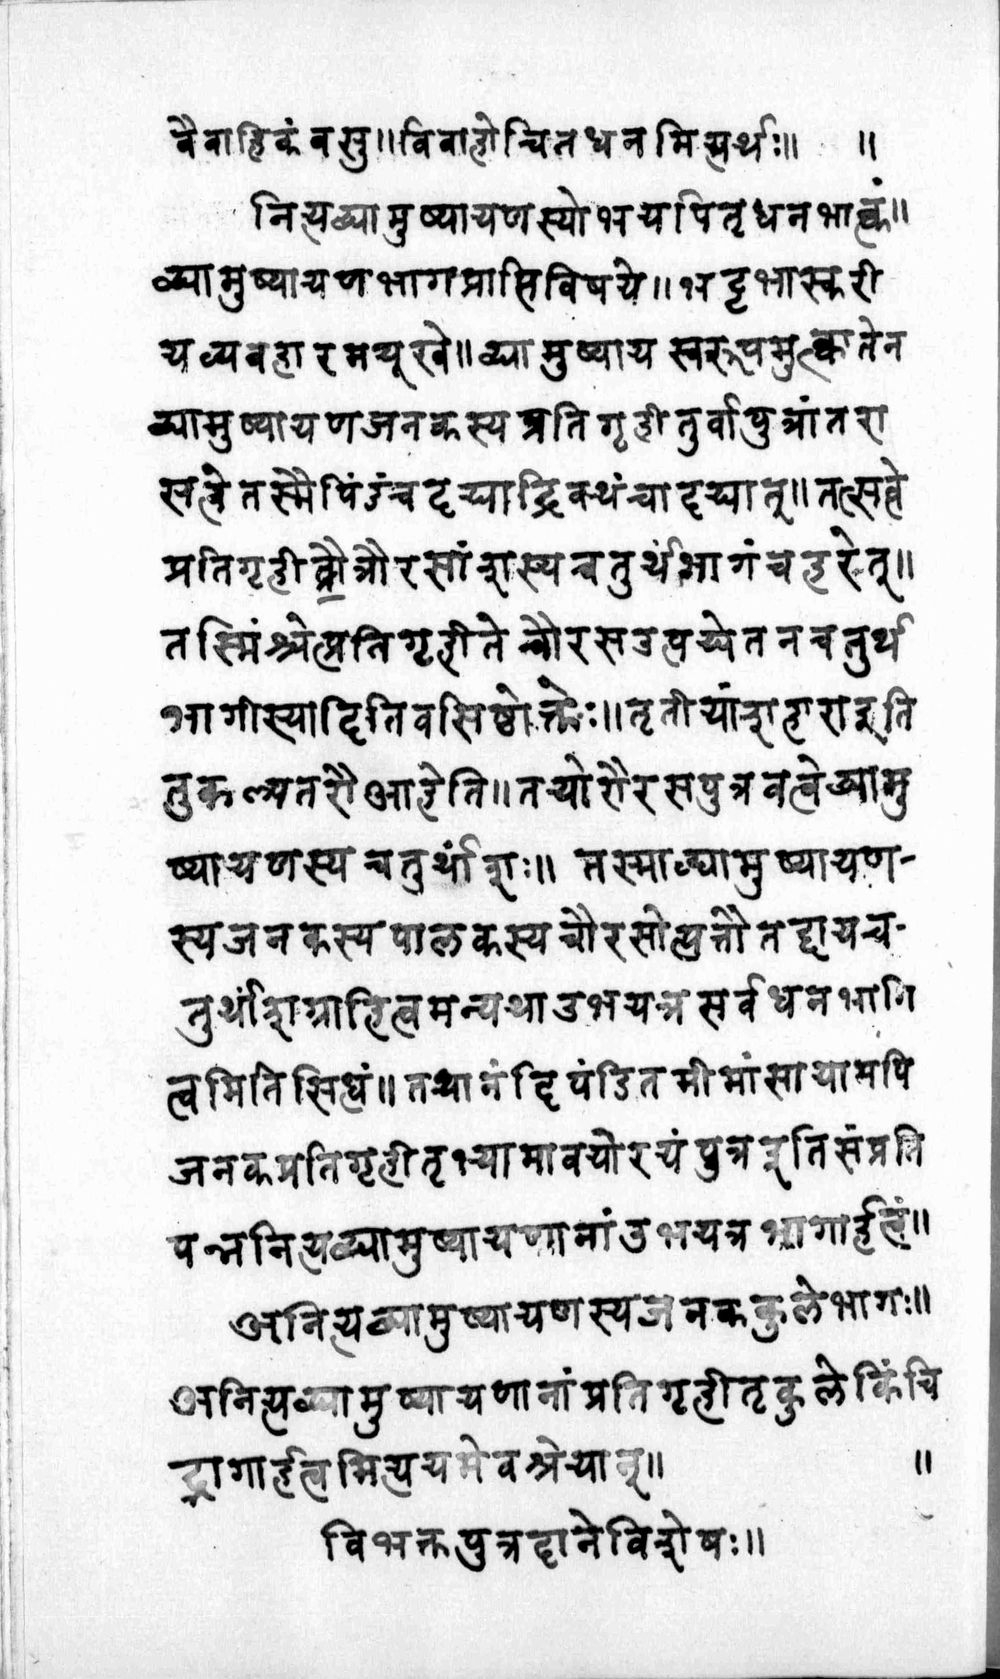 वैवाहिकंवसु॥विवाहोचितधनमित्यर्थः॥ ॥
नित्यद्व्यामुष्यायणस्योभयपितृधनभाक्त्वं॥
द्व्यामुष्यायणभागप्राप्तिविषये॥भट्टभास्करी
यव्यवहारमयूखे॥द्व्यामुष्यायस्वरूपमुक्त्वातेन
द्व्यामुष्यायणजनकस्यप्रतिगृहीतुर्वापुत्रांतरा
सत्वेतस्मैपिंडंचदद्याद्रिक्थंचादद्यात्॥तत्सत्वे
प्रतिगृहीत्रौत्रौरसांशस्यचतुर्थंभागंचहरेत्॥
तस्मिंश्चेत्प्रतिगृहीतेचौरसउत्पद्येतनचतुर्थ
भागीस्यादितिवसिष्ठोक्तेः॥तृतीयांशहाराइति
तुकल्पतरौआहेति॥तयोरौरसपुत्रवत्वेद्व्यामु
ष्यायणस्यचतुर्थांशः॥तस्माद्व्यामुष्यायण-
स्यजनकस्यपालकस्यचौरसोत्पत्तौतद्दायच-
तुर्थांशग्राहित्वमन्यथाउभयत्रसर्वधनभागि
त्वमितिसिधं॥तथानंदिपंडितमीमांसायामपि
जनकप्रतिगृहीतृभ्यामावयोरयंपुत्रइतिसंप्रति
पन्ननित्यद्व्यामुष्यायणानांउभयत्रभागार्हत्वं॥
अनित्यद्व्यामुष्यायणस्यजनककुलेभागः॥
अनित्यद्व्यामुष्यायणानांप्रतिगृहीतृकुलेकिंचि
द्भागार्हत्वमित्ययमेवश्रेयान्॥ ॥
विभक्तपुत्रदानेविशेषः॥